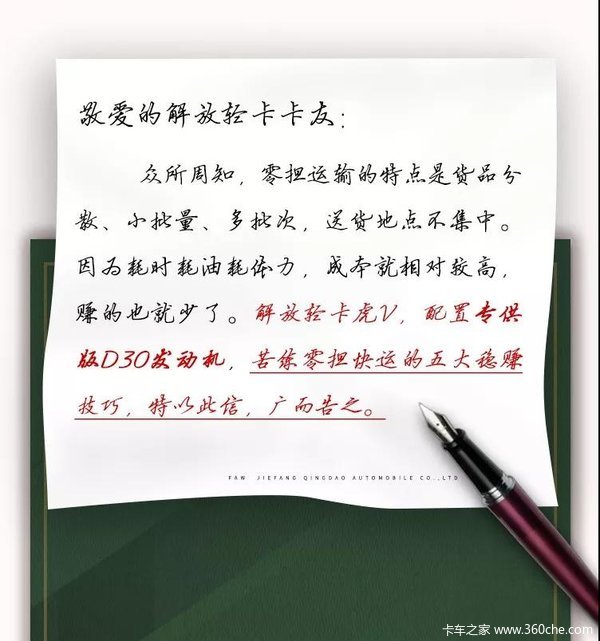 敬爱的解放轻卡卡友：
众所周知，零担运输的特点是货品分
散、小批量、多批次，送货地点不集中。
因为耗时耗油耗体力，成本就相对较高，
赚的也就少了。解放轻卡虎V，配置专供
版D30发动机，苦练零担快运的五大稳赚
技巧，特以此信，广而告之。
FAW JIEFANG QINGDAO AUTOMOBILE CO.,LTD
卡车之家 www.360che.com